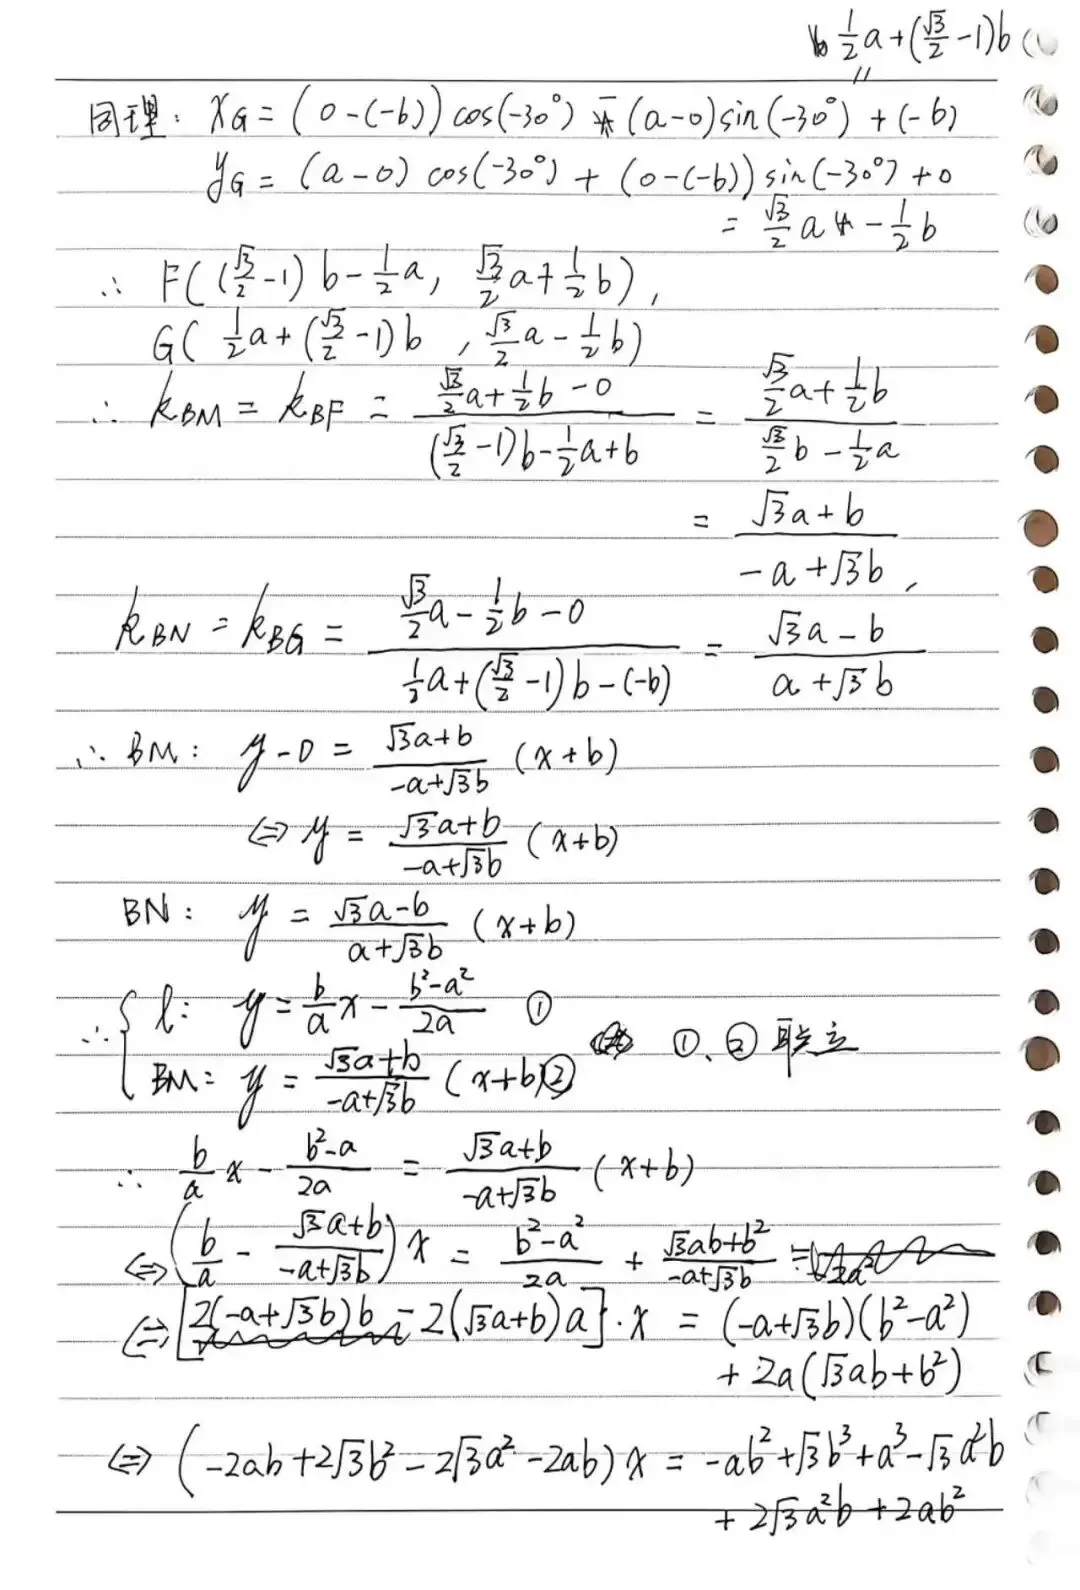 ½a+(√3/2-1)b
〃
同理: x_G = (0-(-b))cos(-30°) - (a-0)sin(-30°) + (-b)
y_G = (a-0) cos(-30°) + (0-(-b)) sin(-30°) + 0
= √3/2 a - ½b
∴ F((√3/2-1)b-½a, √3/2a+½b),
G(½a+(√3/2-1)b, √3/2a-½b)
∴ k_BM = k_BF = (√3/2a+½b-0)/((√3/2-1)b-½a+b) = (√3/2a+½b)/(√3/2b-½a)
= (√3a+b)/(-a+√3b),
k_BN = k_BG = (√3/2a-½b-0)/(½a+(√3/2-1)b-(-b)) = (√3a-b)/(a+√3b)
∴ BM: y-0 = (√3a+b)/(-a+√3b) (x+b)
⇔ y = (√3a+b)/(-a+√3b) (x+b)
BN: y = (√3a-b)/(a+√3b) (x+b)
∴ { l: y = b/a x - (b²-a²)/2a ①
BM: y = (√3a+b)/(-a+√3b) (x+b) ② ①、② 联立
∴ b/a x - (b²-a)/2a = (√3a+b)/(-a+√3b) (x+b)
⇔ (b/a - (√3a+b)/(-a+√3b)) x = (b²-a²)/2a + (√3ab+b²)/(-a+√3b)
⇔ [2(-a+√3b)b - 2(√3a+b)a]·x = (-a+√3b)(b²-a²)
+ 2a(√3ab+b²)
⇔ (-2ab+2√3b²-2√3a²-2ab)x = -ab²+√3b³+a³-√3a²b
+ 2√3a²b + 2ab²